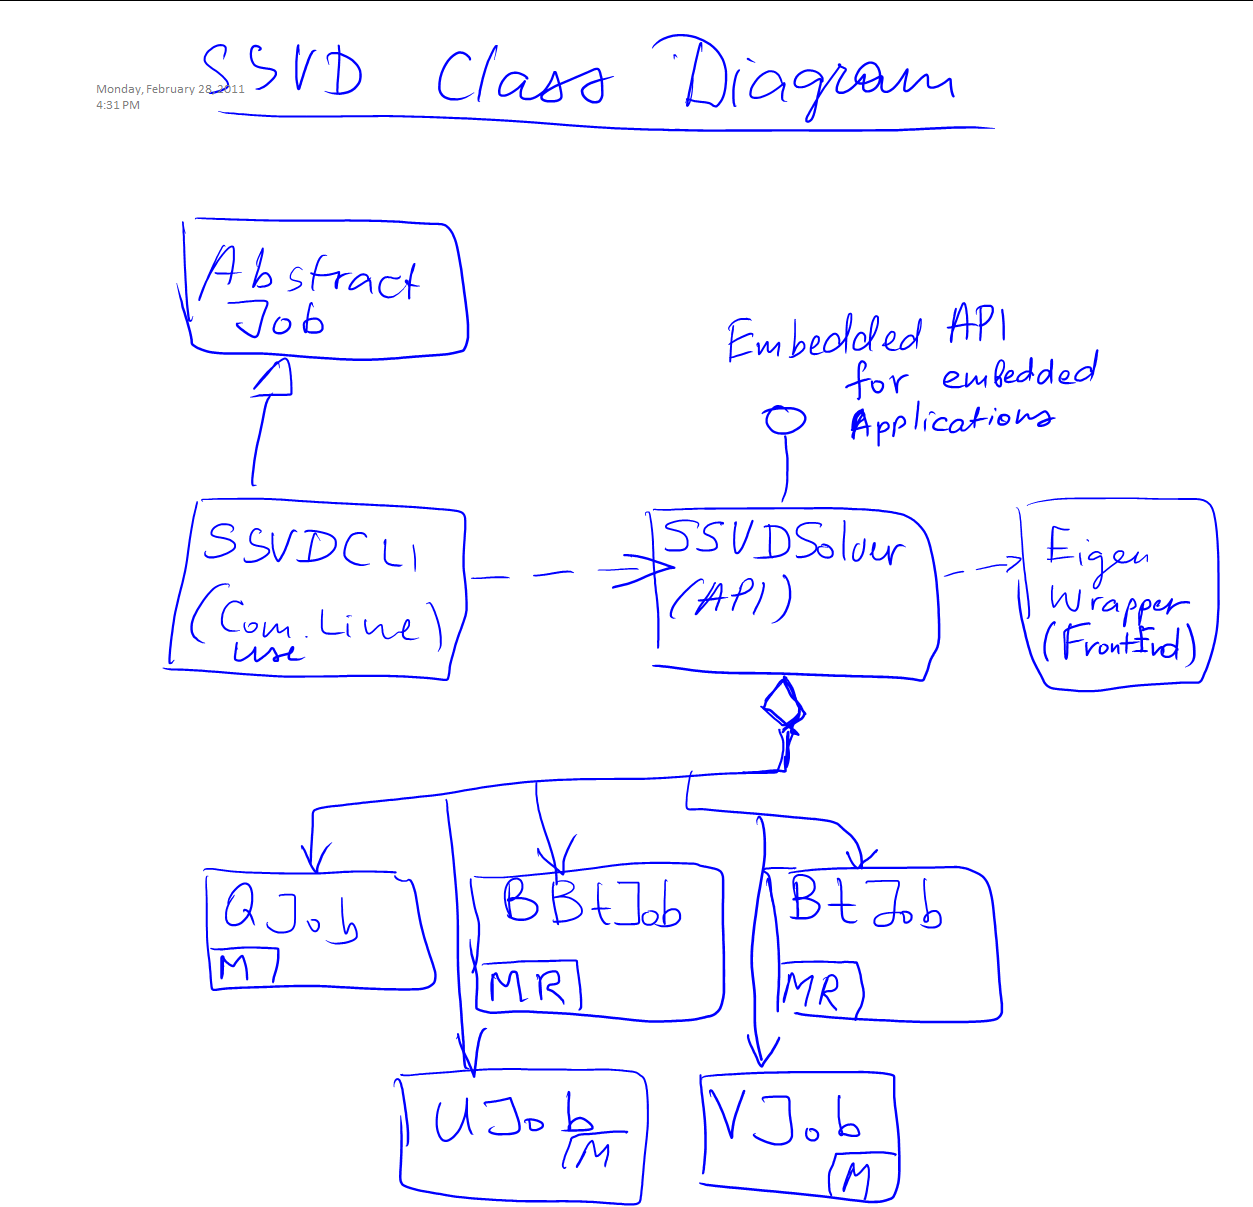 SSVD Class Diagram
Monday, February 28, 2011
4:31 PM
Abstract
Job
Embedded API
for embedded
Applications
SSVDCLI
(Com. Line)
use
SSVDSolver
(API)
Eigen
Wrapper
(FrontEnd)
QJob
M
BBtJob
MR
BtJob
MR
UJob
M
VJob
M